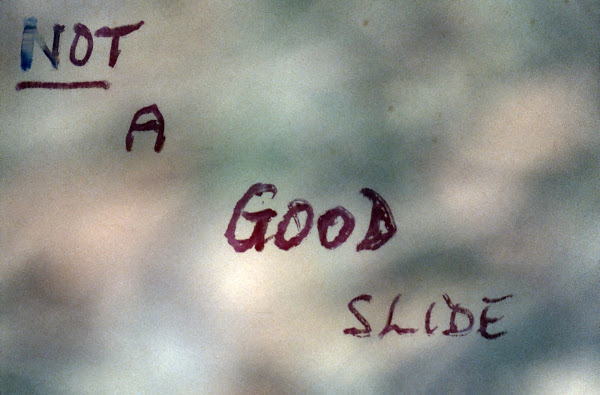 NOT
A
GOOD
SLIDE